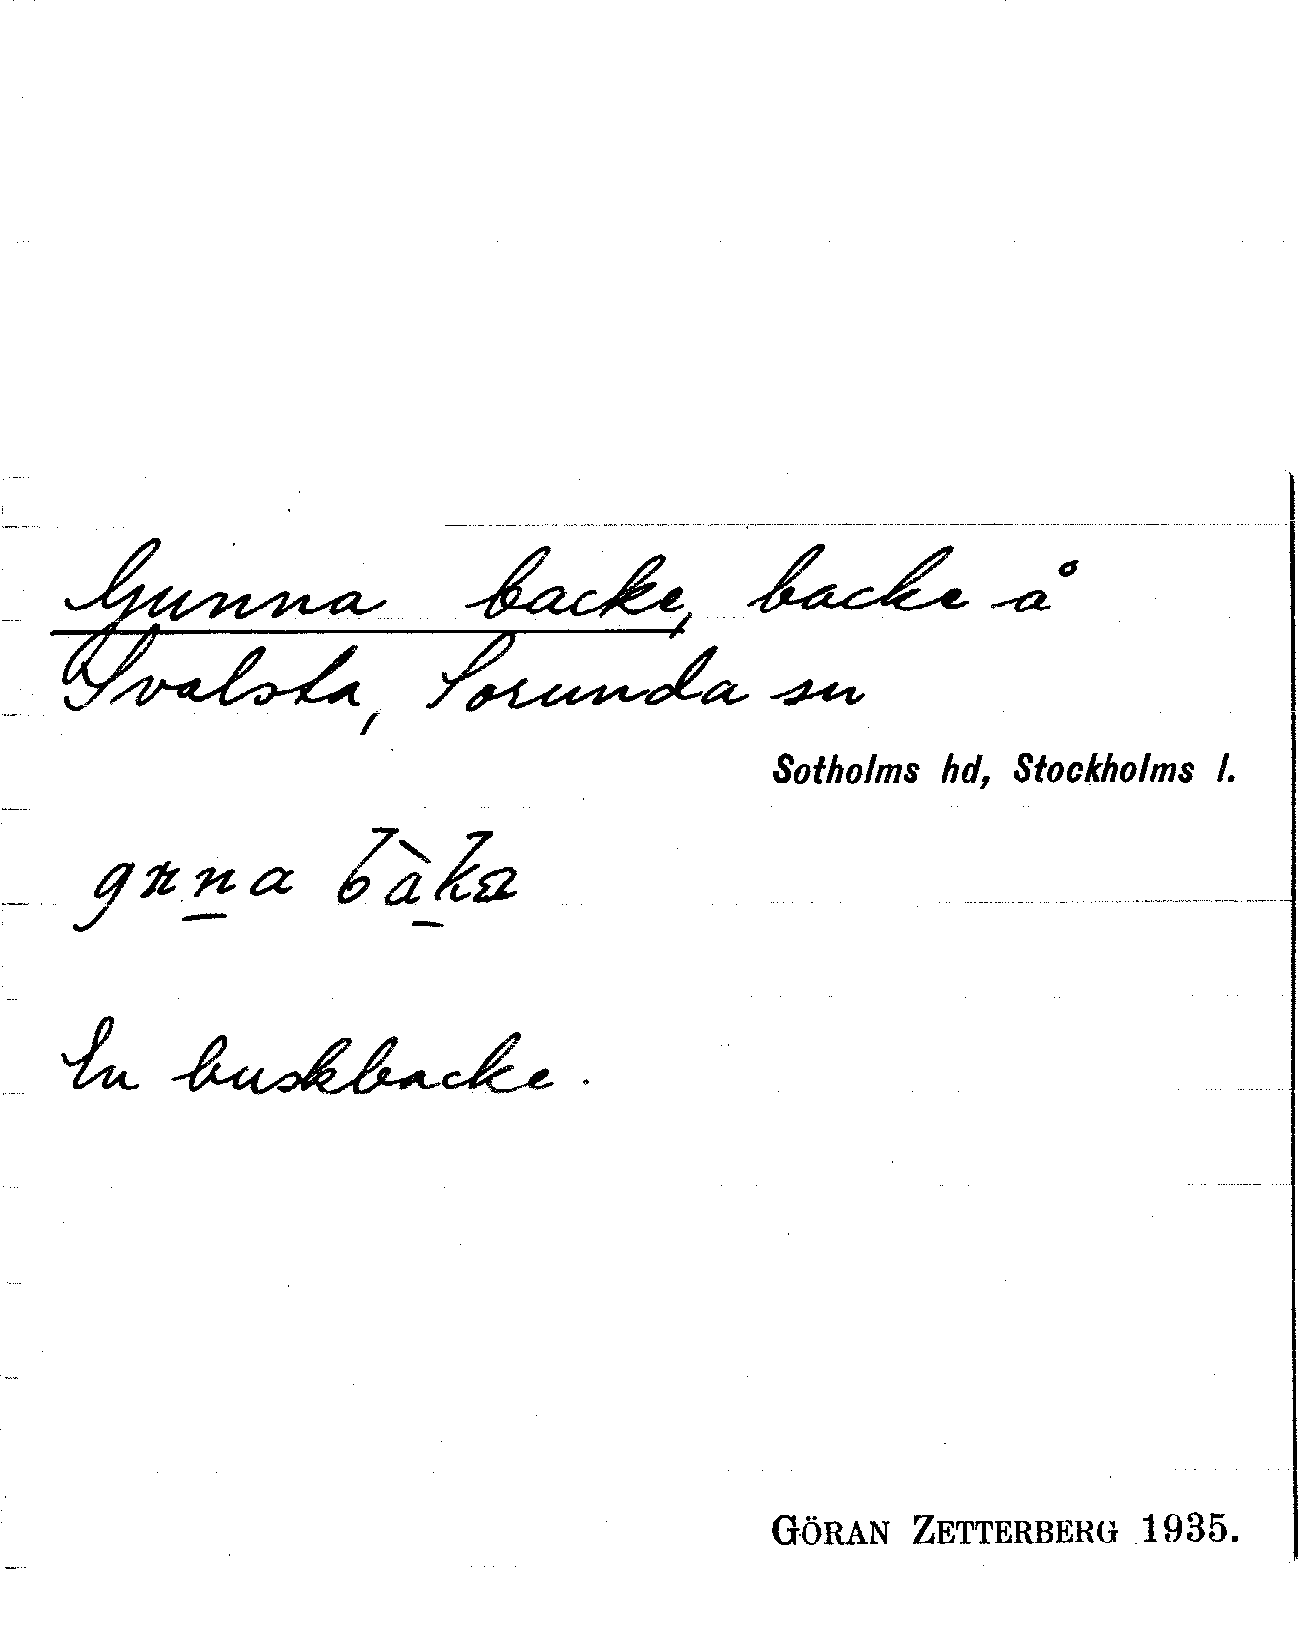 Gunna backe, backe å
Svalsta, Sorunda sn
Sotholms hd, Stockholms l.
En buskbacke.
GÖRAN ZETTERBERG 1935.